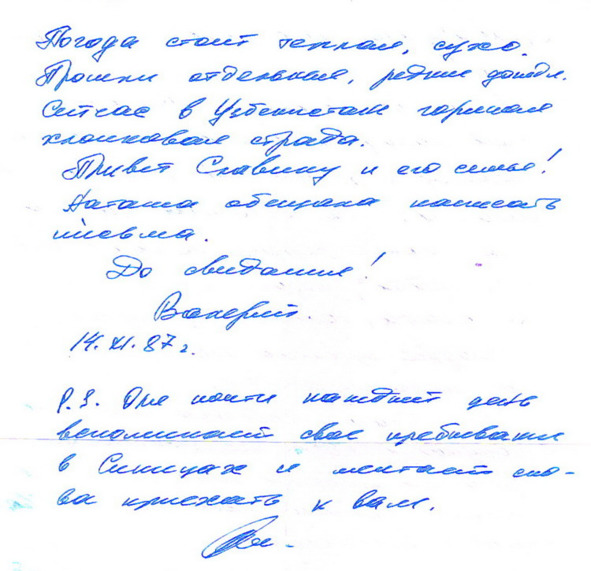 Погода стоит теплая, сухо.
Прошли отдельные, редкие дожди.
Сейчас в Узбекистане горячая
хлопковая страда.
Привет Славику и его семье!
Наташа обещала написать
письма.
До свидания!
Валерий.
14.XI.87 г.
P.S. Оле почти каждый день
вспоминает свое пребывание
в Синицах и мечтает сно-
ва приехать к вам.